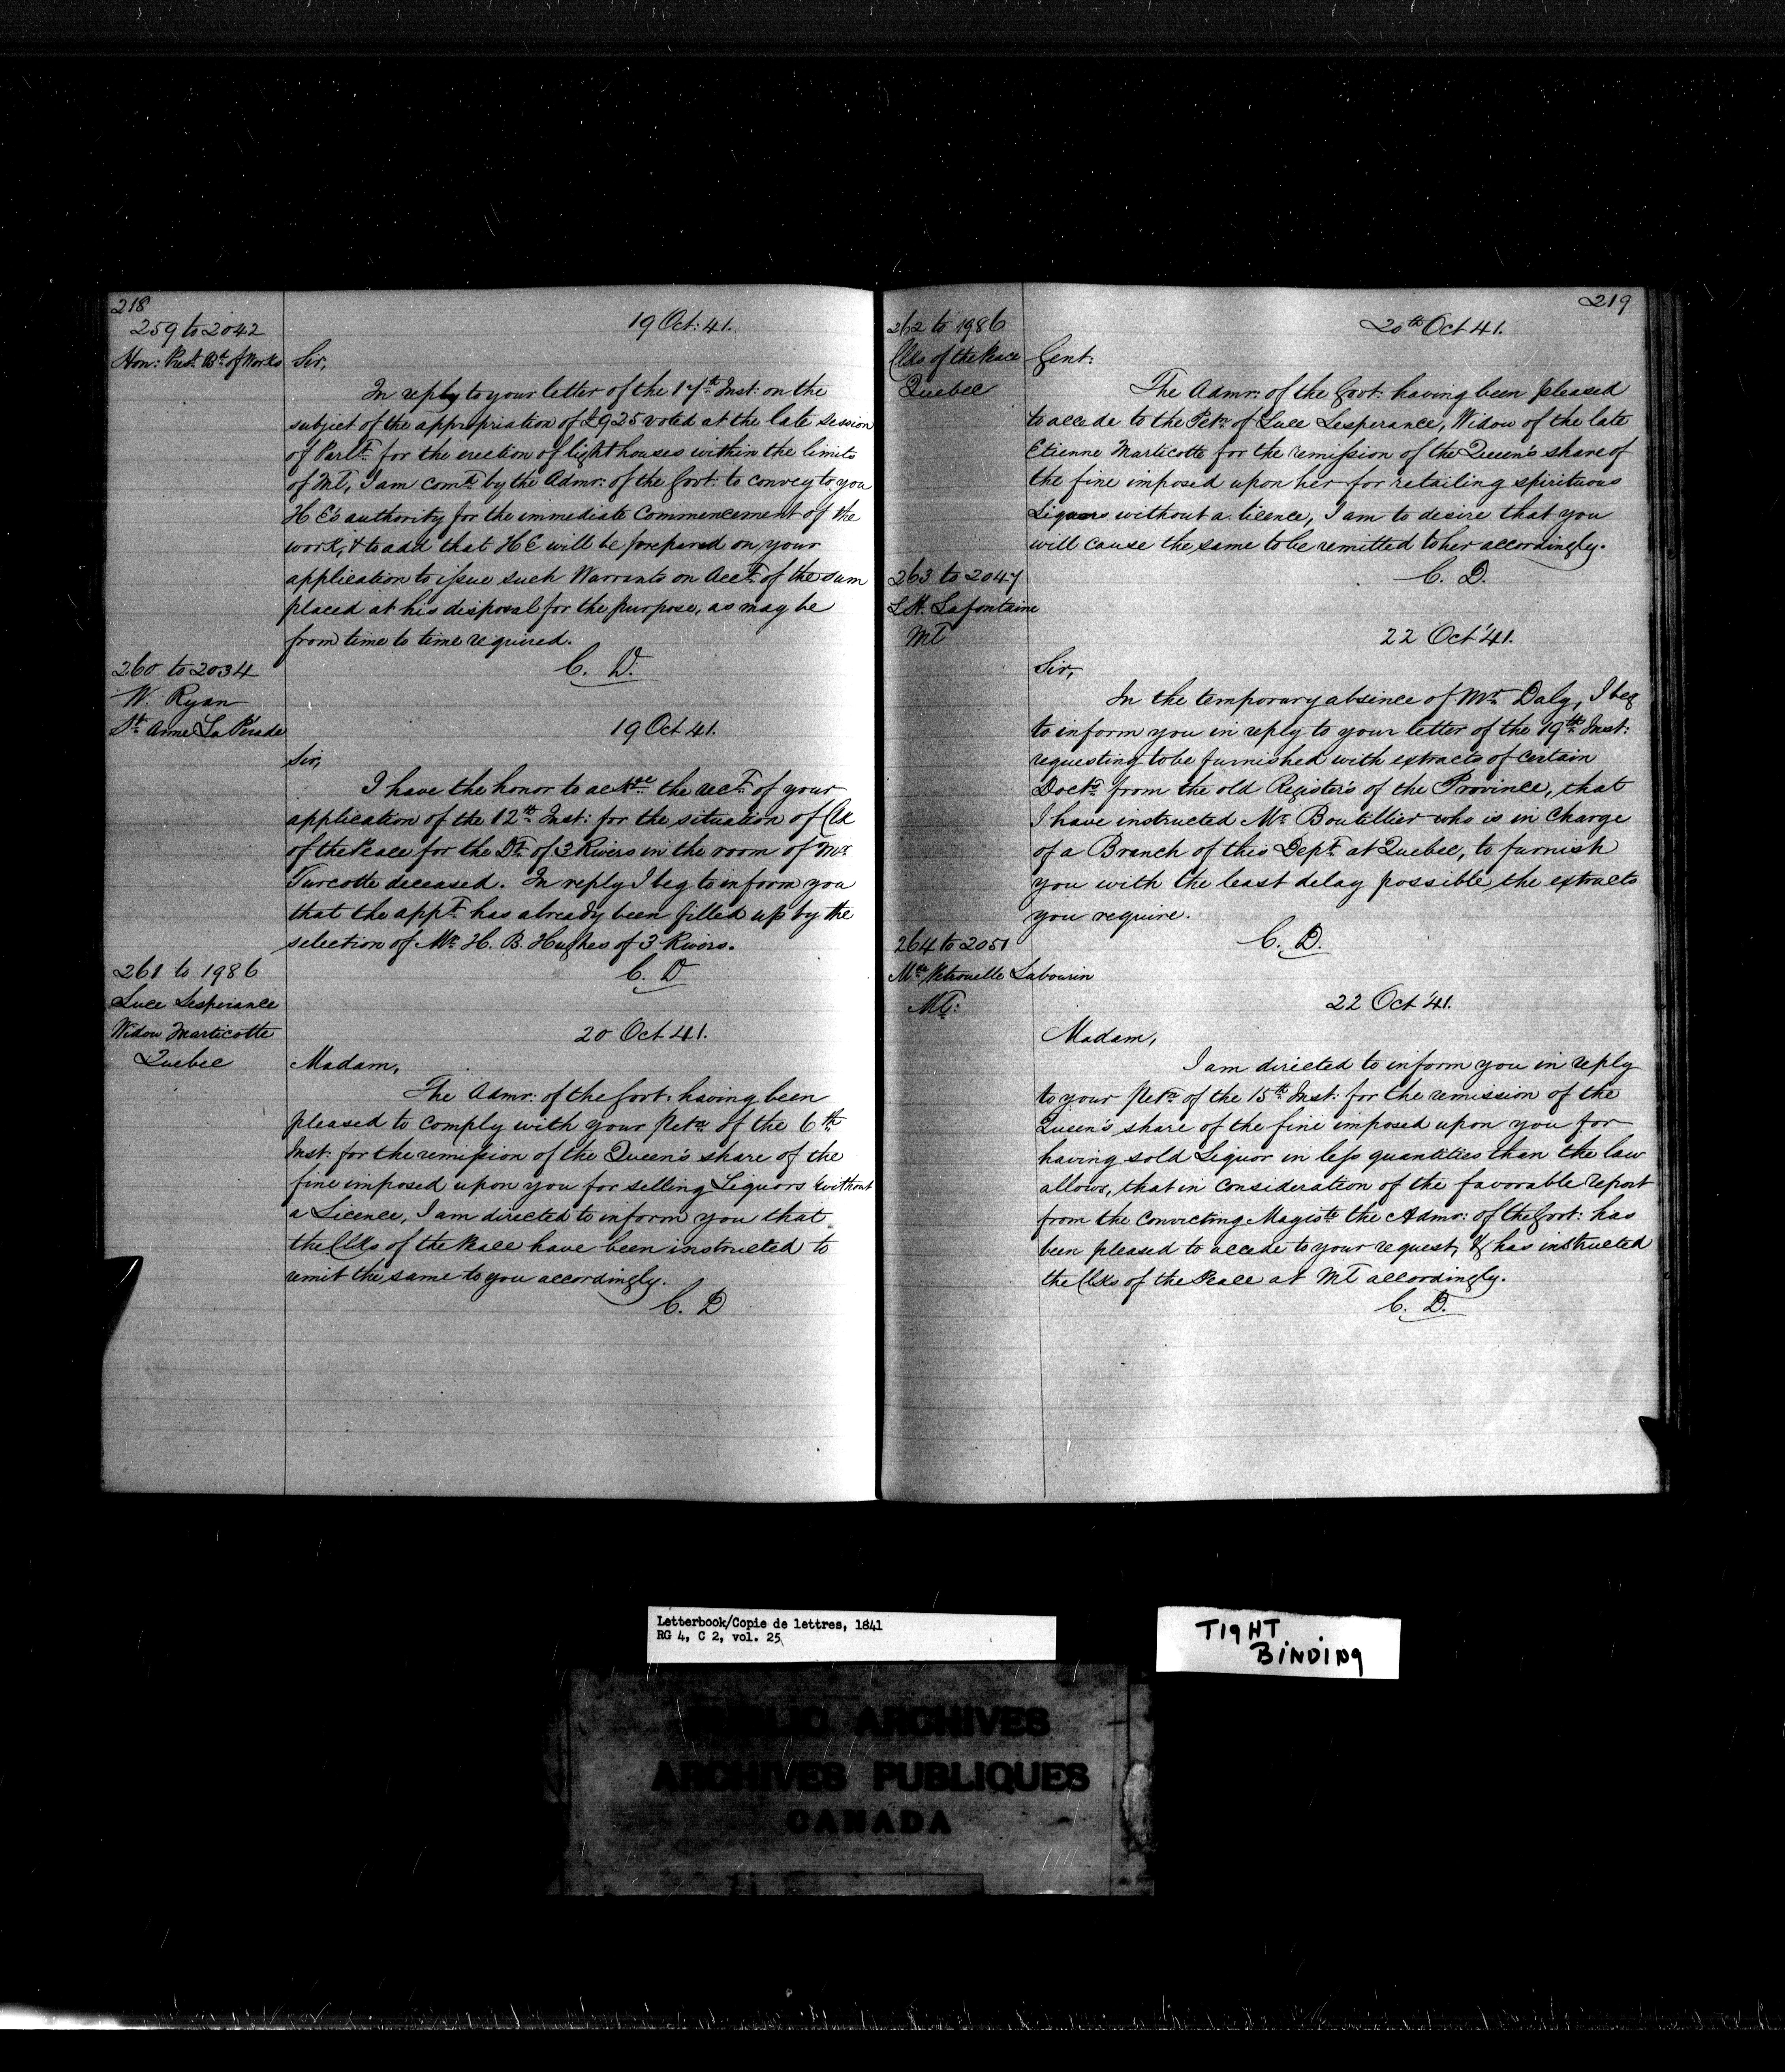 218
259 to 2042
Hon: Presᵗ Bᵈ of Works
19 Oct: 41.
Sir,
In reply to your letter of the 17ᵗʰ Inst: on the
subject of the appropriation of £925 voted at the late session
of Parlᵗ for the erection of light houses within the limits
of Mᵗ, I am comᵈ by the Admr: of the Govt: to convey to you
H E's authority for the immediate commencement of the
work, & to add that H E will be prepared on your
application to issue such Warrants on Accᵗ of the sum
placed at his disposal for the purpose, as may be
from time to time required.
C. D.
260 to 2034
W. Ryan
Sᵗ Anne La Pérade
19 Oct 41.
Sir,
I have the honor to ackᵍᵉ the recᵗ of your
application of the 12ᵗʰ Inst: for the situation of Clk
of the Peace for the Dᵗ of 3 Rivers in the room of Mʳ
Turcotte deceased. In reply I beg to inform you
that the appᵗ has already been filled up by the
selection of Mʳ H. B. Hughes of 3 Rivers.
C. D
261 to 1986
Luce Lesperance
Widow Marticotte
Quebec
20 Oct 41.
Madam,
The Admr: of the Govt: having been
pleased to comply with your Petⁿ of the 6ᵗʰ
Inst: for the remission of the Queen's share of the
fine imposed upon you for selling Liquors without
a Licence, I am directed to inform you that
the Clks of the Peace have been instructed to
remit the same to you accordingly.
C. D
219
262 to 1986
Clks of the Peace
Quebec
20ᵗʰ Oct 41.
Gent:
The Admr: of the Govt: having been pleased
to accede to the Petⁿ of Luce Lesperance, Widow of the late
Etienne Marticotte for the remission of the Queen's share of
the fine imposed upon her for retailing spirituous
Liquors without a licence, I am to desire that you
will cause the same to be remitted to her accordingly.
C. D.
263 to 2047
L H. Lafontaine
Mᵗ
22 Oct '41.
Sir,
In the temporary absence of Mʳ Daly, I beg
to inform you in reply to your letter of the 19ᵗʰ Inst:
requesting to be furnished with extracts of certain
Doctˢ from the old Registers of the Province, that
I have instructed Mʳ Boutillier who is in charge
of a Branch of this Depᵗ at Quebec, to furnish
you with the least delay possible the extracts
you require.
C. D.
264 to 2051
Mᵉ Petronelle Labourin
Mᵗ:
22 Oct '41.
Madam,
I am directed to inform you in reply
to your Petⁿ of the 15ᵗʰ Inst: for the remission of the
Queen's share of the fine imposed upon you for
having sold Liquor in less quantities than the law
allows, that in consideration of the favorable report
from the convicting Magistᵉ the Admr: of the Govt: has
been pleased to accede to your request, & has instructed
the Clks of the Peace at Mᵗ accordingly.
C. D.
Letterbook/Copie de lettres, 1841
RG 4, C 2, vol. 25
TIGHT
BINDING
PUBLIC ARCHIVES
ARCHIVES PUBLIQUES
CANADA